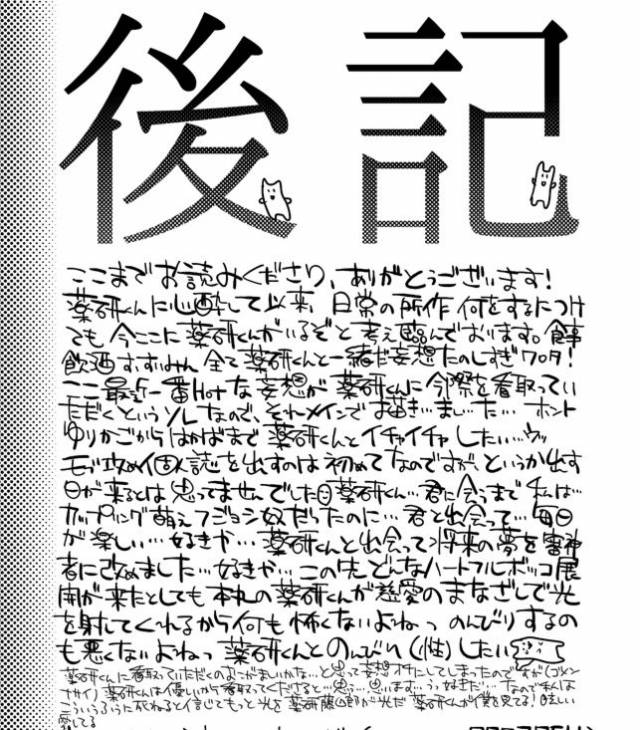 後記
ここまでお読みくださり、ありがとうございます!
薬研くんに心酔して以来、日常の所作 何をするにつけ
ても 今ここに薬研くんがいるぞと考え臨んでおります。食事
飲酒すいすいみん 全て薬研くんと一緒だ妄想たのしすぎワロタ!
ここ最近一番Hotな妄想が 薬研くんに今際を看取ってい
ただくというソレなので、それメインでお描き…ました… ホント
ゆりかごからはかばまで 薬研くんとイチャイチャしたい…ウッ
モブ攻め個人誌を出すのは初めてなのですが、というか出す
日が来るとは思ってませんでした 薬研くん…君に会うまで私は…
カップリング萌えフジョシ奴だったのに… 君と出会って…毎日
が楽しい…好きや… 薬研くんと出会って将来の夢を審神
者に改めました…好きや…この先どんなハートフルボッコ展
開が来たとしても 本丸の薬研くんが慈愛のまなざしで光
を射してくれるから何も怖くないよねっ のんびりするの
も悪くないよねっ 薬研くんとのんびり(性)したい
薬研くんに看取っていただくのおこがましいかな…と思って妄想オチにしてしまったのですが(ゴメン
ナサイ) 薬研くんは優しいから看取ってくださると…思…思います…うっ好きだ… なので私は
こういうふうに死ねると信じて もっと光を 薬研藤四郎が光だ 薬研くんが僕を見てる! 眩しい
愛してる